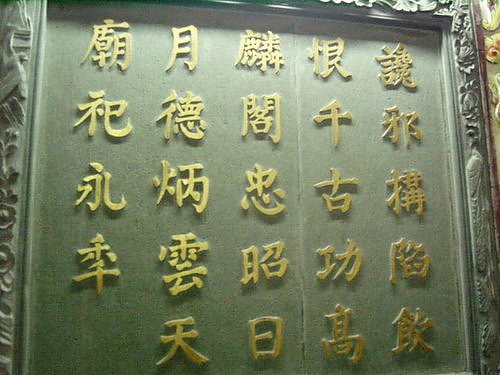 讒邪構陷飲
恨千古功高
麟閣忠昭日
月德炳雲天
廟祀永年